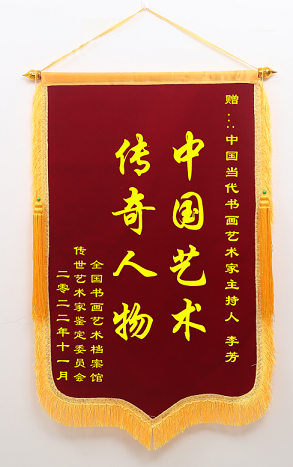 赠：:中国当代书画艺术家主持人 李芳
中国艺术
传奇人物
全国书画艺术档案馆
传世艺术家鉴定委员会
二零二二年十一月